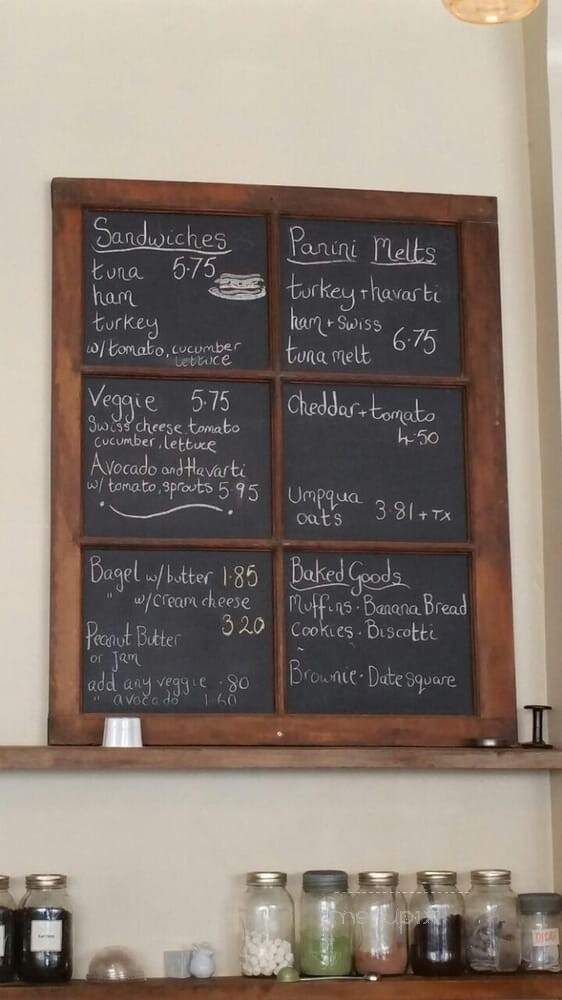 Sandwiches
tuna 5.75
ham
turkey
w/tomato, cucumber
lettuce
Panini Melts
turkey + havarti
ham + Swiss
6.75
tuna melt
Veggie 5.75
Swiss cheese, tomato
cucumber, lettuce
Avocado and Havarti
w/tomato, sprouts 5.95
Cheddar + tomato
4.50
Umpqua
oats 3.81 + TX
Bagel w/butter 1.85
" w/cream cheese
3.20
Peanut Butter
or Jam
add any veggie .80
" avocado 1.60
Baked Goods
Muffins · Banana Bread
Cookies · Biscotti
Brownie · Date square
menupix